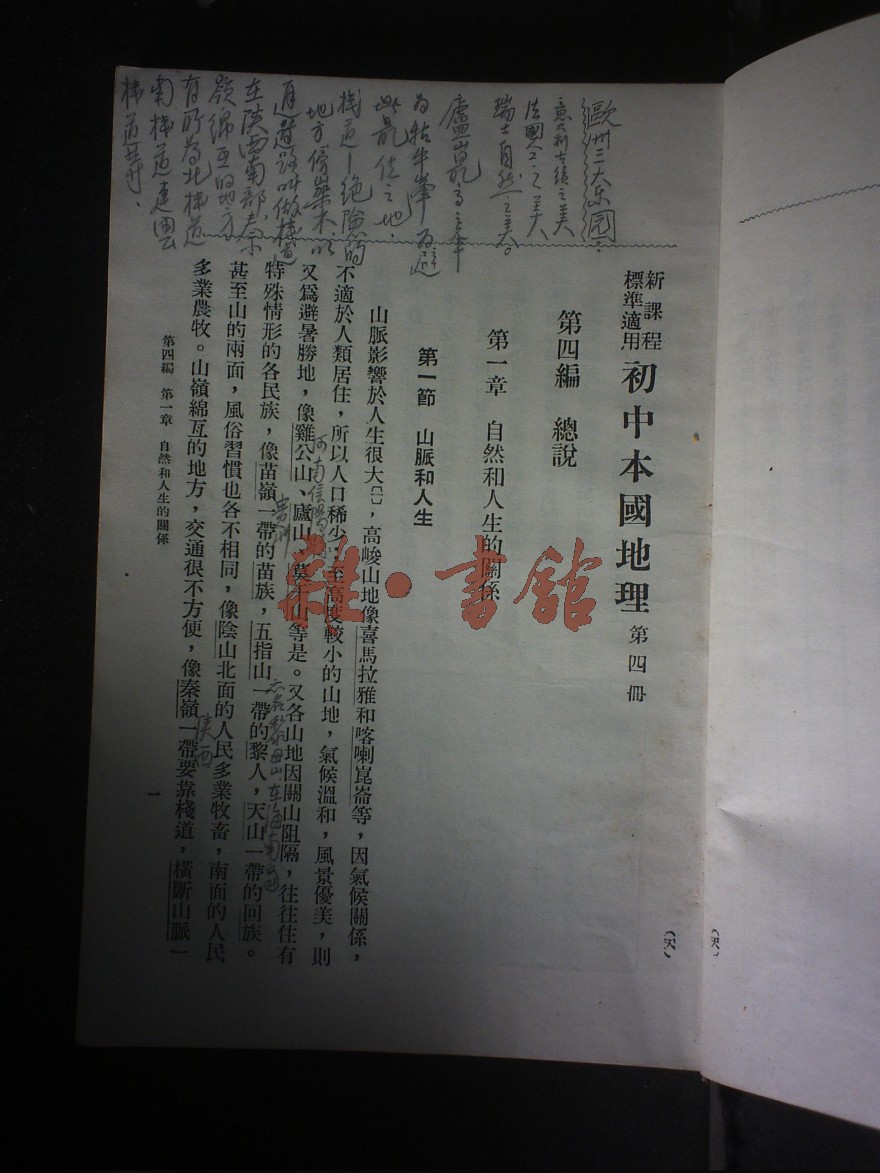 新課程
標準適用
初中本國地理 第四冊
第四編 總說
第一章 自然和人生的關係
第一節 山脈和人生
山脈影響於人生很大〔一〕，高峻山地像喜馬拉雅和喀喇崑崙等，因氣候關係，
不適於人類居住，所以人口稀少；至高度較小的山地，氣候溫和，風景優美，則
又爲避暑勝地，像雞公山、廬山、莫干山等是。又各山地因關山阻隔，往往住有
特殊情形的各民族，像苗嶺一帶的苗族，五指山一帶的黎人，天山一帶的回族。
甚至山的兩面，風俗習慣也各不相同，像陰山北面的人民多業牧畜，南面的人民
多業農牧。山嶺綿亙的地方，交通很不方便，像秦嶺一帶要靠棧道，橫斷山脈一
第四編 第一章 自然和人生的關係
一
歐州三大乐园：
意大利古蹟之美
法國人工之美
瑞士自然之美。
廬山最高之峯
为牯牛峯 为避
此最佳之地、
棧道—绝險的
地方傍山架木、以
通道路叫做棧道
在陝西南部、秦
嶺綿亙的地方
有所为北棧道
南棧道連雲
棧道
河南信陽
貴州
海南
陝西
雜·書館